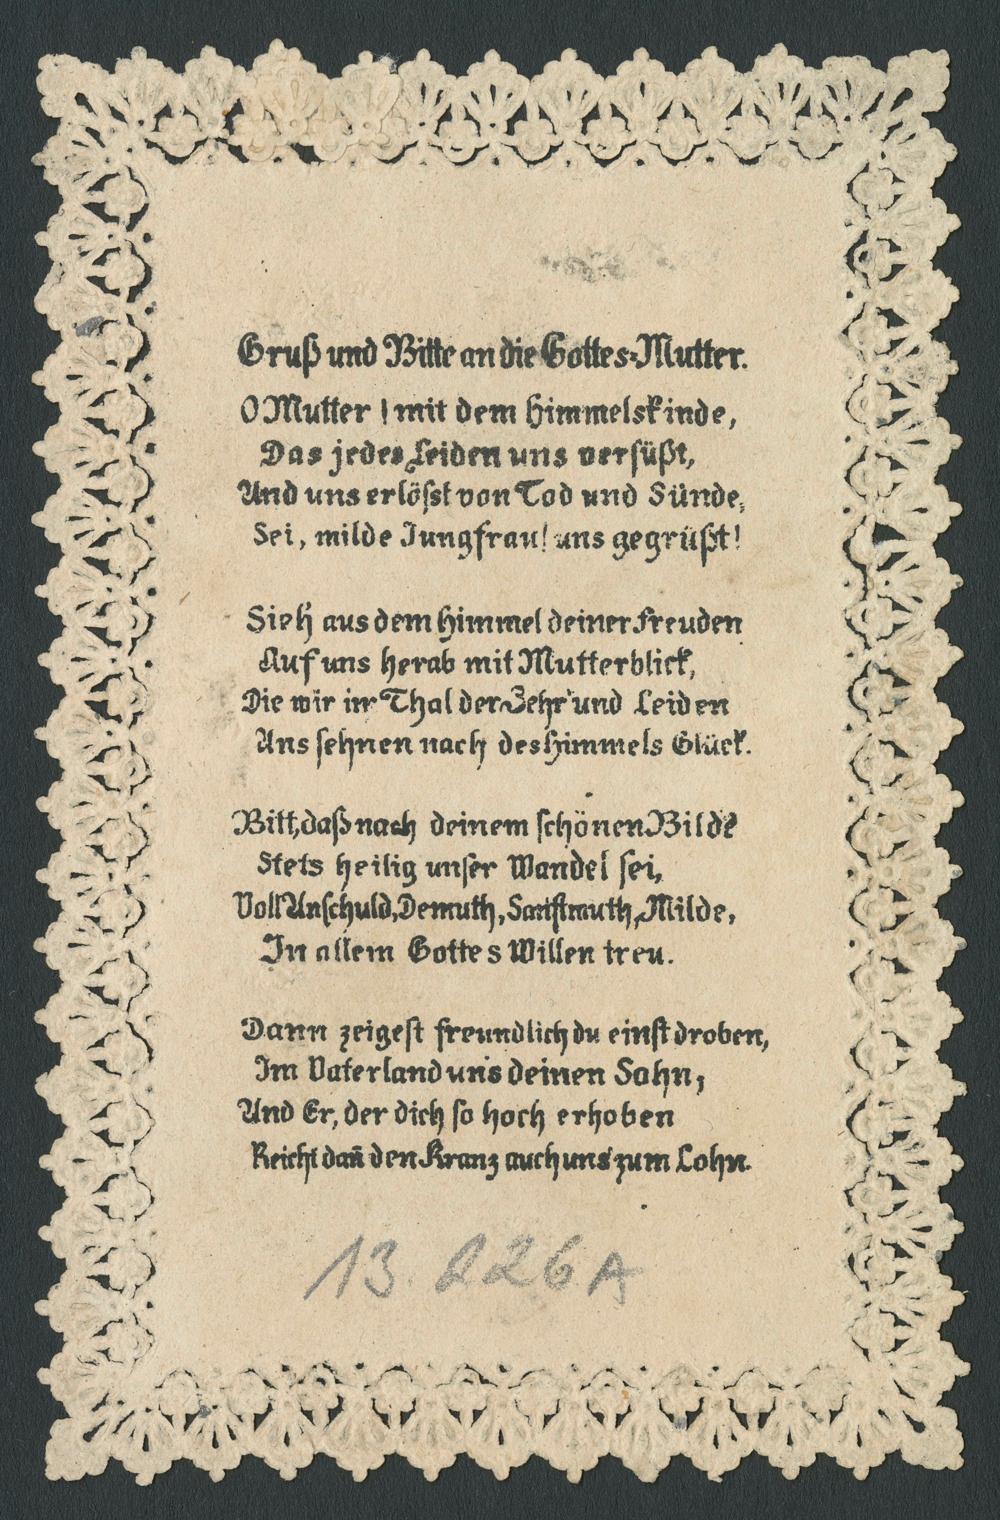 Gruß und Bitte an die Gottes-Mutter.
O Mutter! mit dem Himmelskinde,
Das jedes Leiden uns versüßt,
Und uns erlösst von Tod und Sünde,
Sei, milde Jungfrau! uns gegrüßt!
Sieh' aus dem Himmel deiner Freuden
Auf uns herab mit Mutterblick,
Die wir im Thal der Zehr' und Leiden
Uns sehnen nach des Himmels Glück.
Bitt, daß nach deinem schönen Bilde
Stets heilig unser Wandel sei,
Voll Unschuld, Demuth, Sanftmuth, Milde,
In allem Gottes Willen treu.
Dann zeigest freundlich du einst droben,
Im Vaterland uns deinen Sohn;
Und Er, der dich so hoch erhoben
Reicht dañ den Kranz auch uns zum Lohn.
13. 226 A